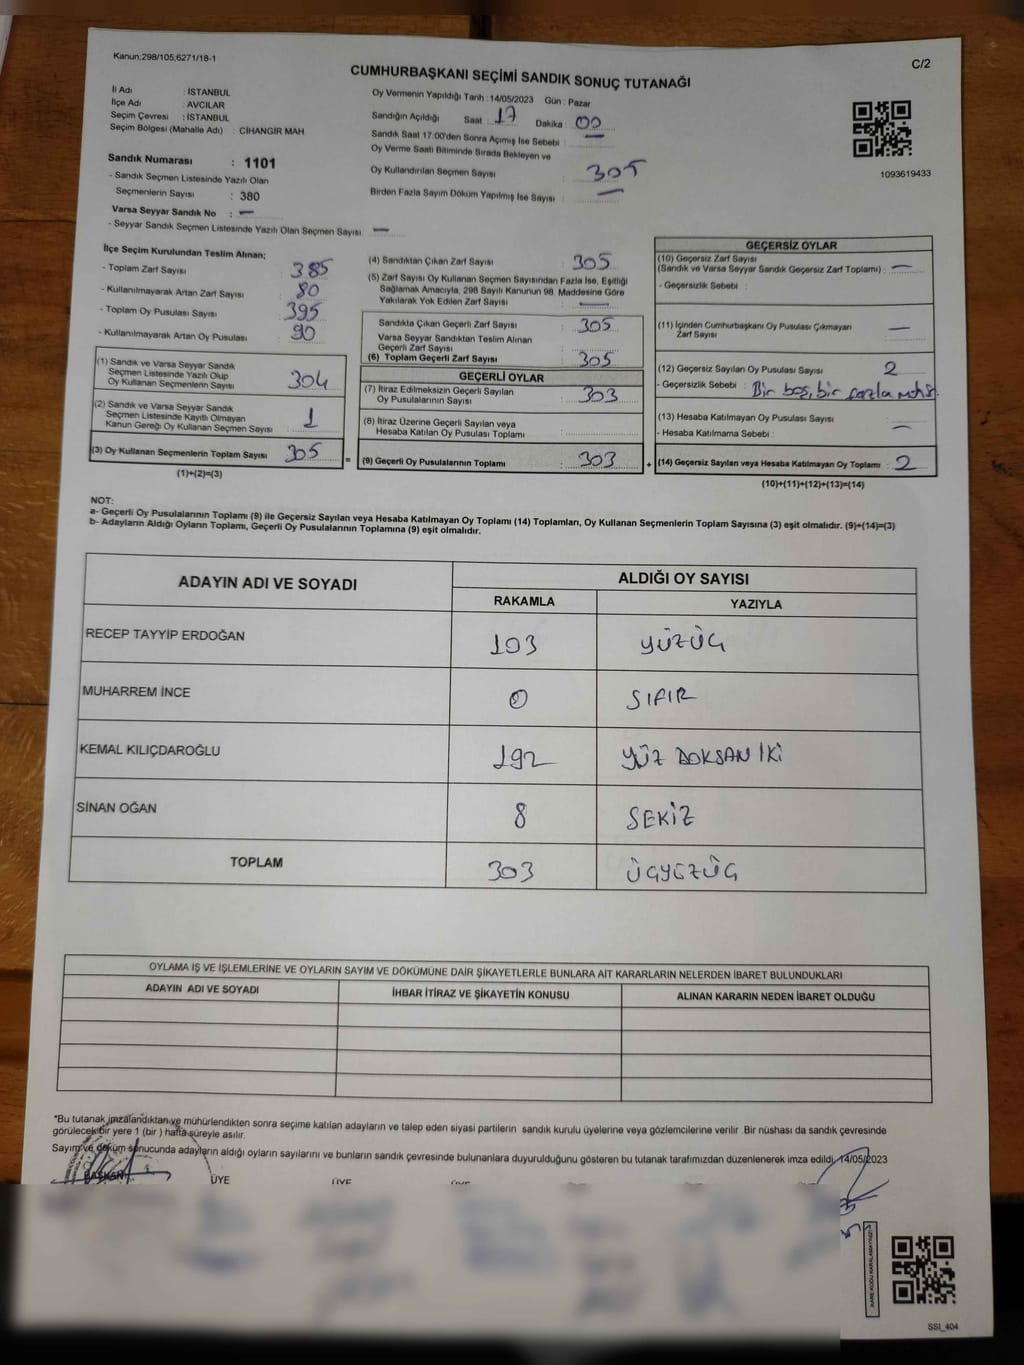 Kanun:298/105,6271/18-1
C/2
CUMHURBAŞKANI SEÇİMİ SANDIK SONUÇ TUTANAĞI
İl Adı : İSTANBUL
İlçe Adı : AVCILAR
Seçim Çevresi : İSTANBUL
Seçim Bölgesi (Mahalle Adı) : CİHANGİR MAH.
Sandık Numarası : 1101
- Sandık Seçmen Listesinde Yazılı Olan
Seçmenlerin Sayısı : 380
Varsa Seyyar Sandık No : —
- Seyyar Sandık Seçmen Listesinde Yazılı Olan Seçmen Sayısı —
Oy Vermenin Yapıldığı Tarih : 14/05/2023 Gün : Pazar
Sandığın Açıldığı Saat : 17 Dakika : 00
Sandık Saat 17:00'den Sonra Açımış İse Sebebi : —
Oy Verme Saati Bitiminde Sırada Bekleyen ve
Oy Kullandırılan Seçmen Sayısı : 305
Birden Fazla Sayım Döküm Yapılmış İse Sayısı : —
1093619433
İlçe Seçim Kurulundan Teslim Alınan;
- Toplam Zarf Sayısı : 385
- Kullanılmayarak Artan Zarf Sayısı : 80
- Toplam Oy Pusulası Sayısı : 395
- Kullanılmayarak Artan Oy Pusulası : 90
(1) Sandık ve Varsa Seyyar Sandık
Seçmen Listesinde Yazılı Olup
Oy Kullanan Seçmenlerin Sayısı : 304
(2) Sandık ve Varsa Seyyar Sandık
Seçmen Listesinde Kayıtlı Olmayan
Kanun Gereği Oy Kullanan Seçmen Sayısı : 1
(3) Oy Kullanan Seçmenlerin Toplam Sayısı : 305
(1)+(2)=(3)
=
(4) Sandıktan Çıkan Zarf Sayısı : 305
(5) Zarf Sayısı Oy Kullanan Seçmen Sayısından Fazla İse, Eşitliği
Sağlamak Amacıyla, 298 Sayılı Kanunun 98. Maddesine Göre
Yakılarak Yok Edilen Zarf Sayısı : —
Sandıkta Çıkan Geçerli Zarf Sayısı : 305
Varsa Seyyar Sandıktan Teslim Alınan
Geçerli Zarf Sayısı :
(6) Toplam Geçerli Zarf Sayısı : 305
GEÇERLİ OYLAR
(7) İtiraz Edilmeksizin Geçerli Sayılan
Oy Pusulalarının Sayısı : 303
(8) İtiraz Üzerine Geçerli Sayılan veya
Hesaba Katılan Oy Pusulası Toplamı :
(9) Geçerli Oy Pusulalarının Toplamı : 303
+
GEÇERSİZ OYLAR
(10) Geçersiz Zarf Sayısı
(Sandık ve Varsa Seyyar Sandık Geçersiz Zarf Toplamı) : —
- Geçersizlik Sebebi :
(11) İçinden Cumhurbaşkanı Oy Pusulası Çıkmayan
Zarf Sayısı : —
(12) Geçersiz Sayılan Oy Pusulası Sayısı : 2
- Geçersizlik Sebebi : Bir boş, bir fazla
(13) Hesaba Katılmayan Oy Pusulası Sayısı : —
- Hesaba Katılmama Sebebi :
(14) Geçersiz Sayılan veya Hesaba Katılmayan Oy Toplamı : 2
(10)+(11)+(12)+(13)=(14)
NOT:
a- Geçerli Oy Pusulalarının Toplamı (9) ile Geçersiz Sayılan veya Hesaba Katılmayan Oy Toplamı (14) Toplamları, Oy Kullanan Seçmenlerin Toplam Sayısına (3) eşit olmalıdır. (9)+(14)=(3)
b- Adayların Aldığı Oyların Toplamı, Geçerli Oy Pusulalarının Toplamına (9) eşit olmalıdır.
ADAYIN ADI VE SOYADI ALDIĞI OY SAYISI
RAKAMLA YAZIYLA
RECEP TAYYİP ERDOĞAN 103 YÜZÜÇ
MUHARREM İNCE 0 SIFIR
KEMAL KILIÇDAROĞLU 192 YÜZ DOKSAN İKİ
SİNAN OĞAN 8 SEKİZ
TOPLAM 303 ÜÇYÜZÜÇ
OYLAMA İŞ VE İŞLEMLERİNE VE OYLARIN SAYIM VE DÖKÜMÜNE DAİR ŞİKAYETLERLE BUNLARA AİT KARARLARIN NELERDEN İBARET BULUNDUKLARI
ADAYIN ADI VE SOYADI İHBAR İTİRAZ VE ŞİKAYETİN KONUSU ALINAN KARARIN NEDEN İBARET OLDUĞU
*Bu tutanak imzalandıktan ve mühürlendikten sonra seçime katılan adayların ve talep eden siyasi partilerin sandık kurulu üyelerine veya gözlemcilerine verilir. Bir nüshası da sandık çevresinde
görülecek bir yere 1 (bir ) hafta süreyle asılır.
Sayım ve döküm sonucunda adayların aldığı oyların sayılarını ve bunların sandık çevresinde bulunanlara duyurulduğunu gösteren bu tutanak tarafımızdan düzenlenerek imza edildi. 14/05/2023
BAŞKAN ÜYE ÜYE ÜYE
KARE KODU KARALAMAYINIZ
SSI_404